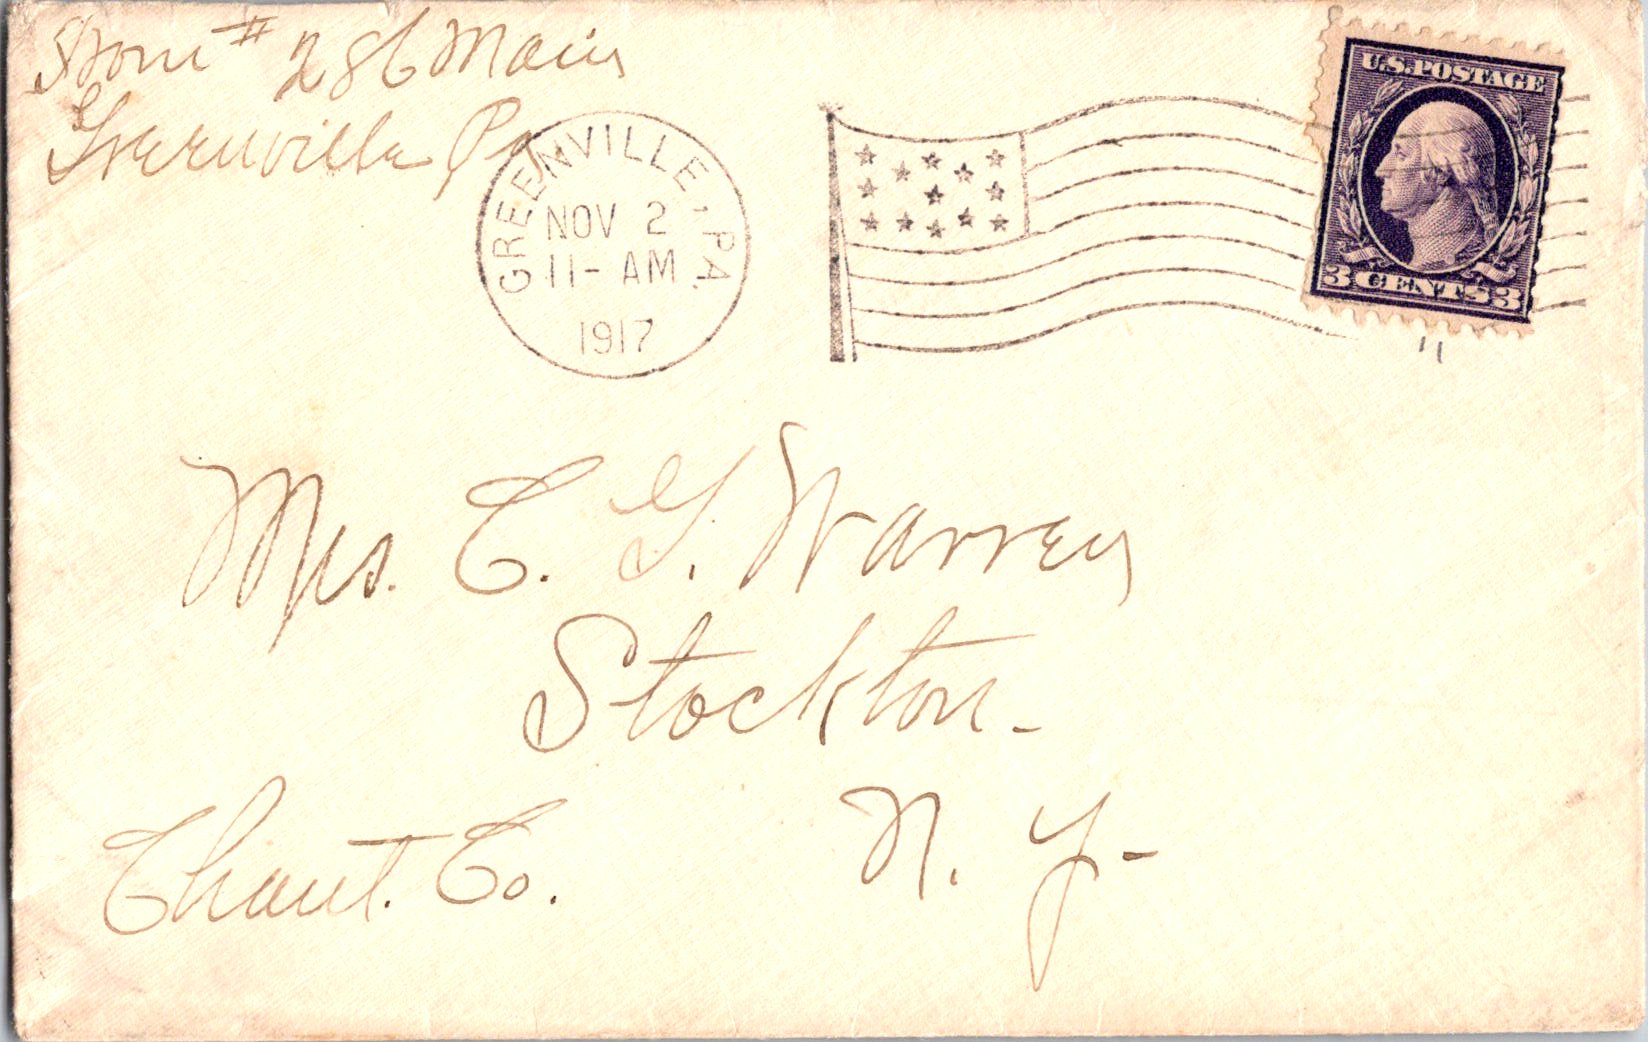 From # 286 Main
Greenville Pa
GREENVILLE, PA.
NOV 2
11- AM
1917
U.S. POSTAGE
3 CENTS 3
Mrs. C. G. Warren
Stockton -
Chaut. Co. N. Y -